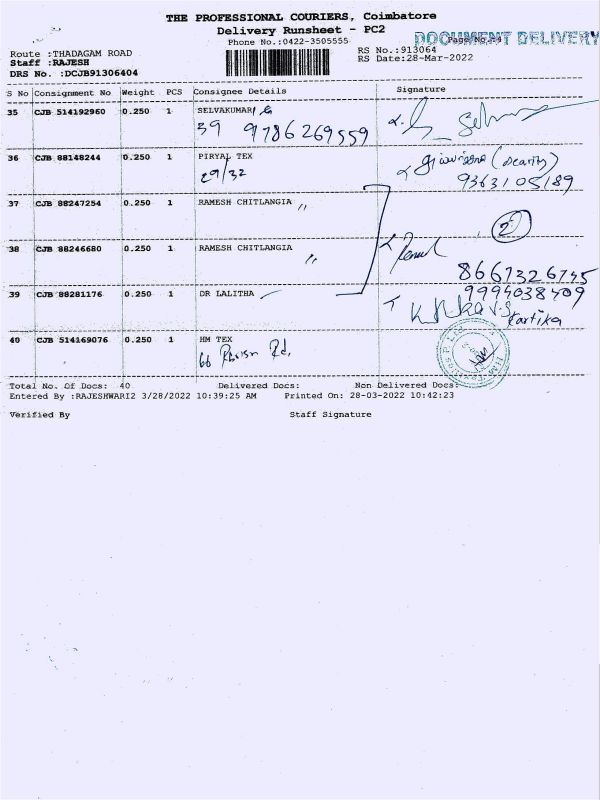 THE PROFESSIONAL COURIERS, Coimbatore
Delivery Runsheet - PC2
Phone No.:0422-3505555
DOCUMENT DELIVERY
Page No.:4
Route :THADAGAM ROAD
RS No.:913064
Staff :RAJESH
RS Date:28-Mar-2022
DRS No. :DCJB91306404
S No Consignment No Weight PCS Consignee Details Signature
35 CJB 514192960 0.250 1 SELVAKUMAR
39 9786269559
36 CJB 88148244 0.250 1 PIRYAL TEX
29/32
9363105189
37 CJB 88247254 0.250 1 RAMESH CHITLANGIA "
2
38 CJB 88246680 0.250 1 RAMESH CHITLANGIA
"
8667326745
39 CJB 88281176 0.250 1 DR LALITHA
9994038409
Kartika
40 CJB 514169076 0.250 1 HM TEX
66 Rd.
Total No. Of Docs: 40 Delivered Docs: Non Delivered Docs:
Entered By :RAJESHWARI2 3/28/2022 10:39:25 AM Printed On: 28-03-2022 10:42:23
Verified By Staff Signature